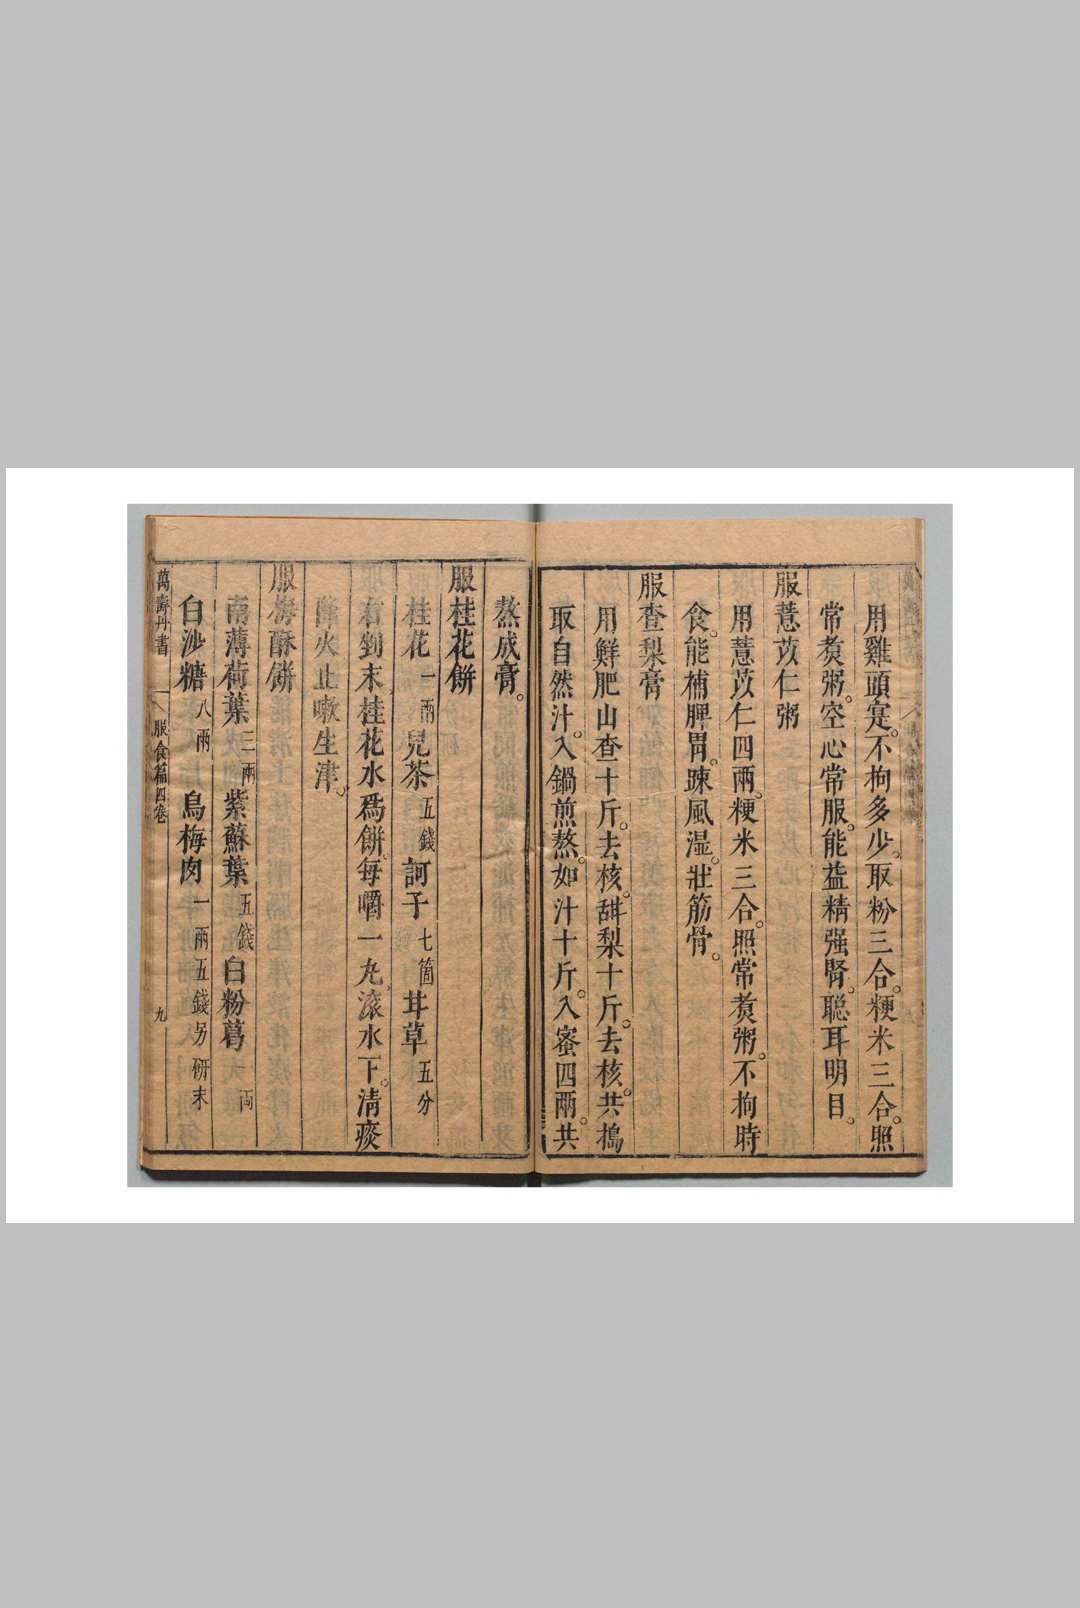 用雞頭寔。不拘多少。取粉三合。粳米三合。照
常煑粥。空心常服。能益精强腎。聡耳明目。
服薏苡仁粥
用薏苡仁四兩。粳米三合。照常煑粥。不拘時
食。能補脾胃。踈風湿。壯筋骨。
服查梨膏
用鮮肥山查十斤。去核。甜梨十斤。去核。共搗
取自然汁。入鍋煎熬。如汁十斤。入蜜四兩。共
熬成膏。
服桂花餅
桂花一兩兒茶五錢訶子七箇甘草五分
右剉末桂花水爲餅。每嚼一丸滚水下。清痰
降火止嗽生津。
服梅酥餅
南薄荷葉三兩紫蘇葉五錢白粉葛 兩
白沙糖八兩烏梅肉一兩五錢另研末
萬壽丹書 服食篇四卷 九